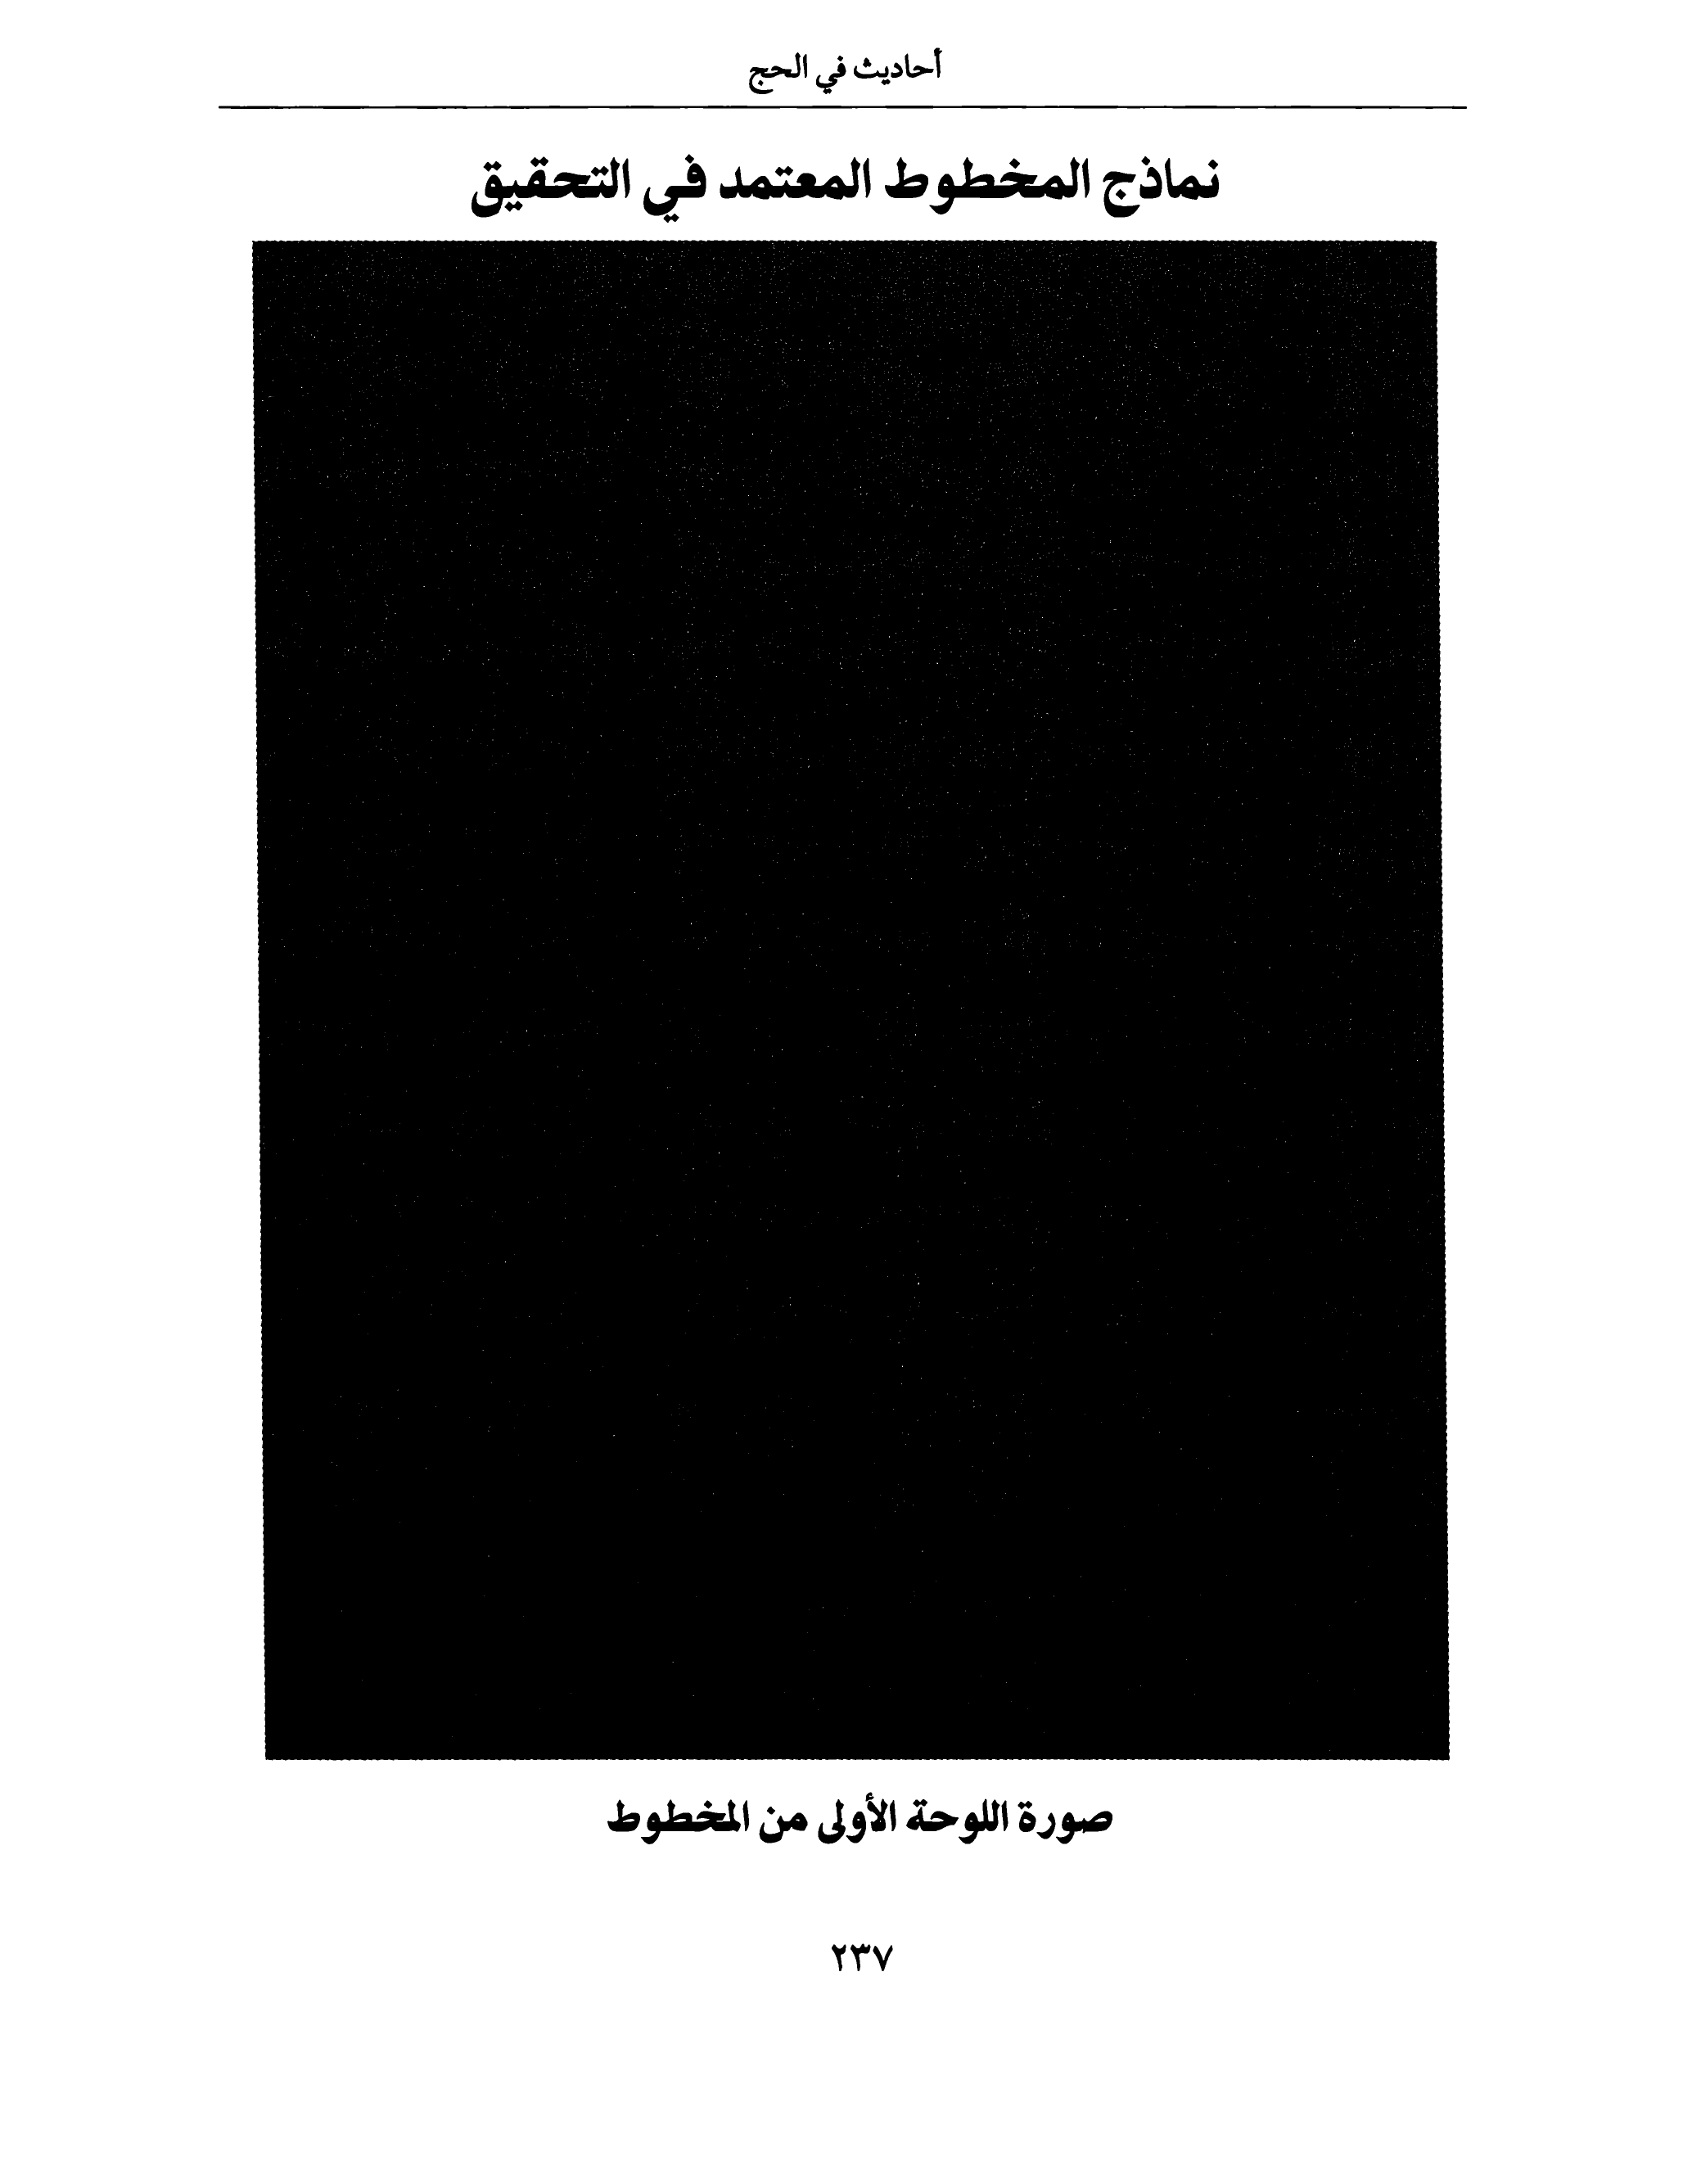 أحاديث في الحج
نماذج المخطوط المعتمد في التحقيق
صورة اللوحة الأولى من المخطوط
٢٣٧